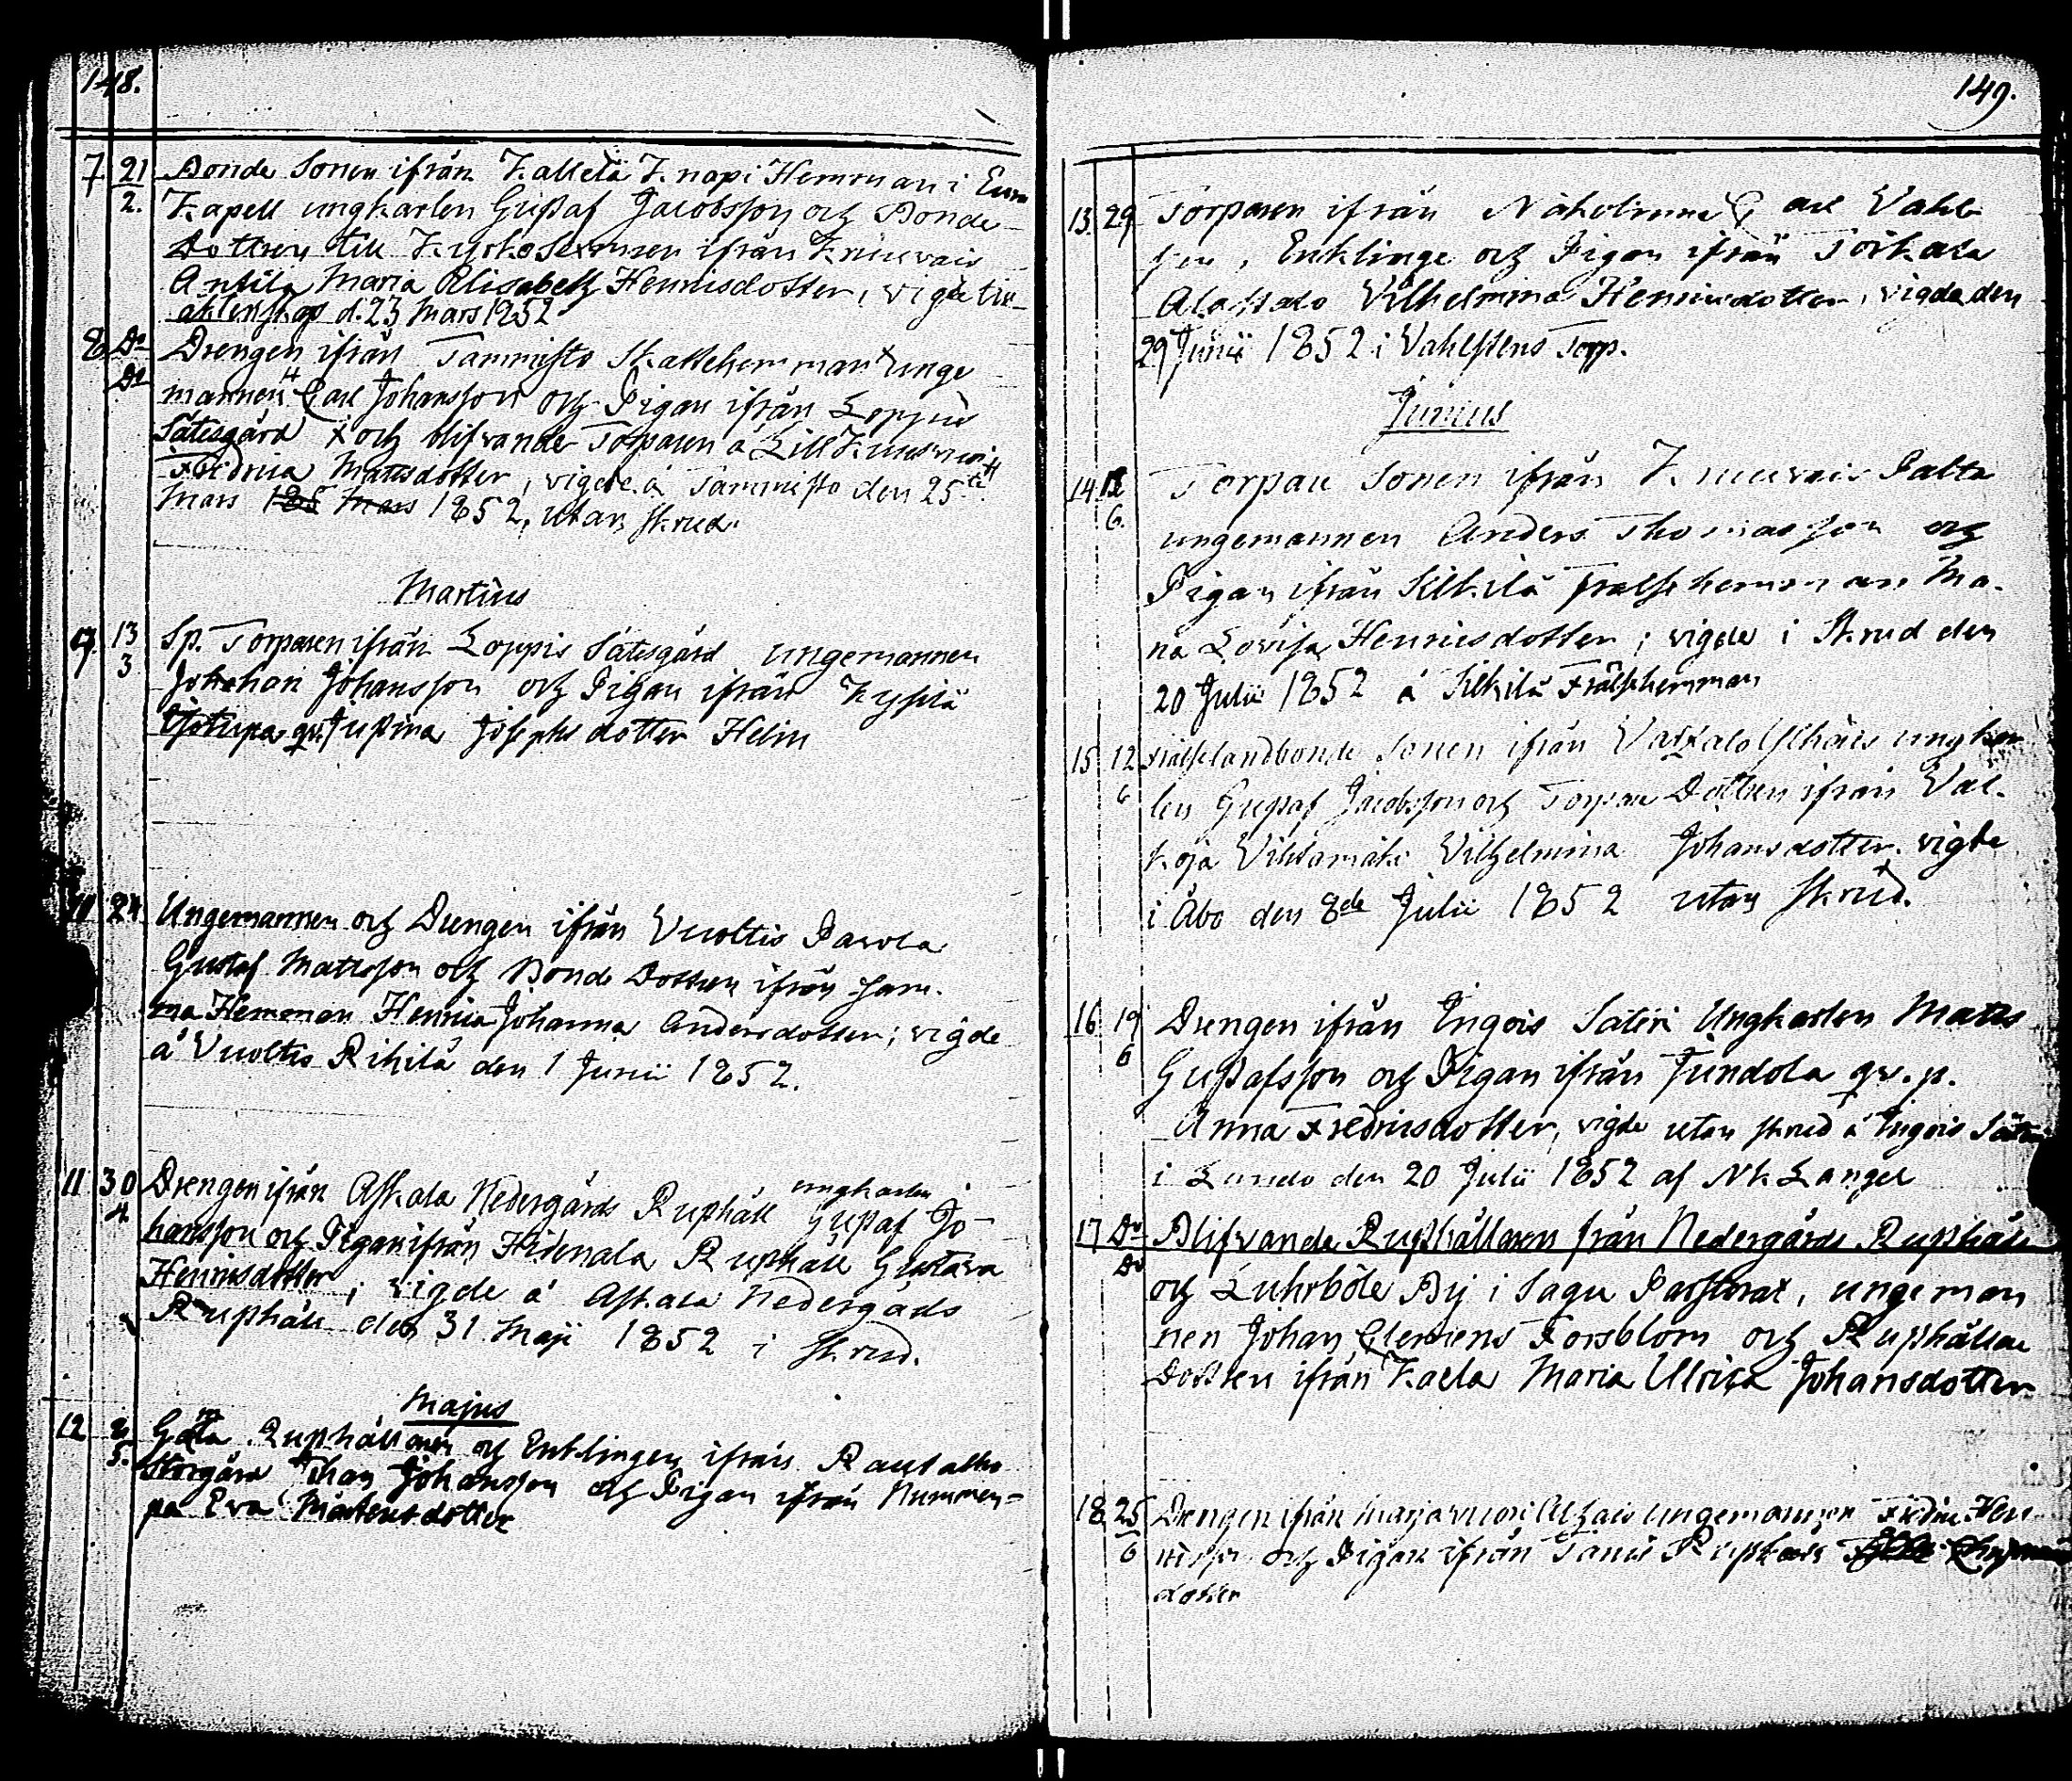 148.
7. 21/2. Bonde Sonen ifrån Kalleta Knapi Hemman i Eura
Kapell ungkarlen Gustaf Jacobsson och Bonde
Dottren till Kyrkosexman ifrån Kruuvais
Anttila Maria Elisabeth Henricsdotter, vigde
äktenskap d. 23 Mars 1852
8 Do Do Drengen ifrån Tammisto Skattehemman unge
mannen Carl Johansson och Pigan ifrån Loppis
Sätesgård och blifvande Torparen å Lill
Fredrica Mattsdotter, vigde å Tammisto den 25te
Mars 1852, utan skrud.
Martius
9. 13/3 Sp. Torparen ifrån Loppis Sätesgård ungemannen
Johan Johansson och Pigan ifrån Kyssilä
qv. Justina Josephsdotter Helin
10 24 Ungemannen och Drengen ifrån Vuoltis Parola
Gustaf Mattsson och Bonde Dottren ifrån sam-
ma Hemman Henrica Johanna Andersdotter; vigde
å Vuoltis Rihilä den 1 Junii 1852.
11 30/4 Drengen ifrån Askala Nedergårds Rusthåll ungkarlen Gustaf Jo-
hansson och Pigan ifrån Hidenala Rusthåll Gustava
Henricsdotter; vigde å Askala Nedergårds
Rusthåll den 31 Maji 1852 i skrud.
Majus
12 5. Gamla Rusthållaren och Enklingen ifrån Rautalho
Storgård Johan Johansson och Pigan ifrån Nummen-
pä Eva Mårtensdotter
149.
13. 29 Torparen ifrån Näkolinna Carl Vahl-
sten, Enklinge och Pigan ifrån Torkala
Alastalo Vilhelmina Henricsdotter, vigde den
29 Junii 1852 i Vahlstens Torp.
Junius
14. 12/6. Torpare Sonen ifrån Kruuvais Palta
ungemannen Anders Thomasson och
Pigan ifrån Kilkilä Frälsehemman Ma-
na Lovisa Henricsdotter; vigde i Skrud den
20 Julii 1852 å Kilkilä Frälsehemman
15 12/6 Frälselandbonde Sonen ifrån ungkar
len Gustaf Jacobsson och Torpare Dottren ifrån Val-
koja Viktamäki Vilhelmina Johansdotter. vigde
i Åbo den 8de Julii 1852 utan Skrud.
16 19/6 Drengen ifrån Ingois Säteri Ungkarlen Matts
Gustafsson och Pigan ifrån Jundola qv. p.
Anna Fredricsdotter, vigde utan skrud å Ingois Säteri
i Lundo den 20 Julii 1852 af Nk Langel
17 Do Do Blifvande Rusthållaren från Nedergårds Rusthåll
och Luhrböle By i Sagu Pastorat, ungeman
nen Johan Clemens Forsblom och Rusthållare
Dottren ifrån Kaela Maria Ulrica Johansdotter
18 25/6 Drengen ifrån ungemannen Fredric Hen-
ricsson och Pigan ifrån Rusthåll
dotter